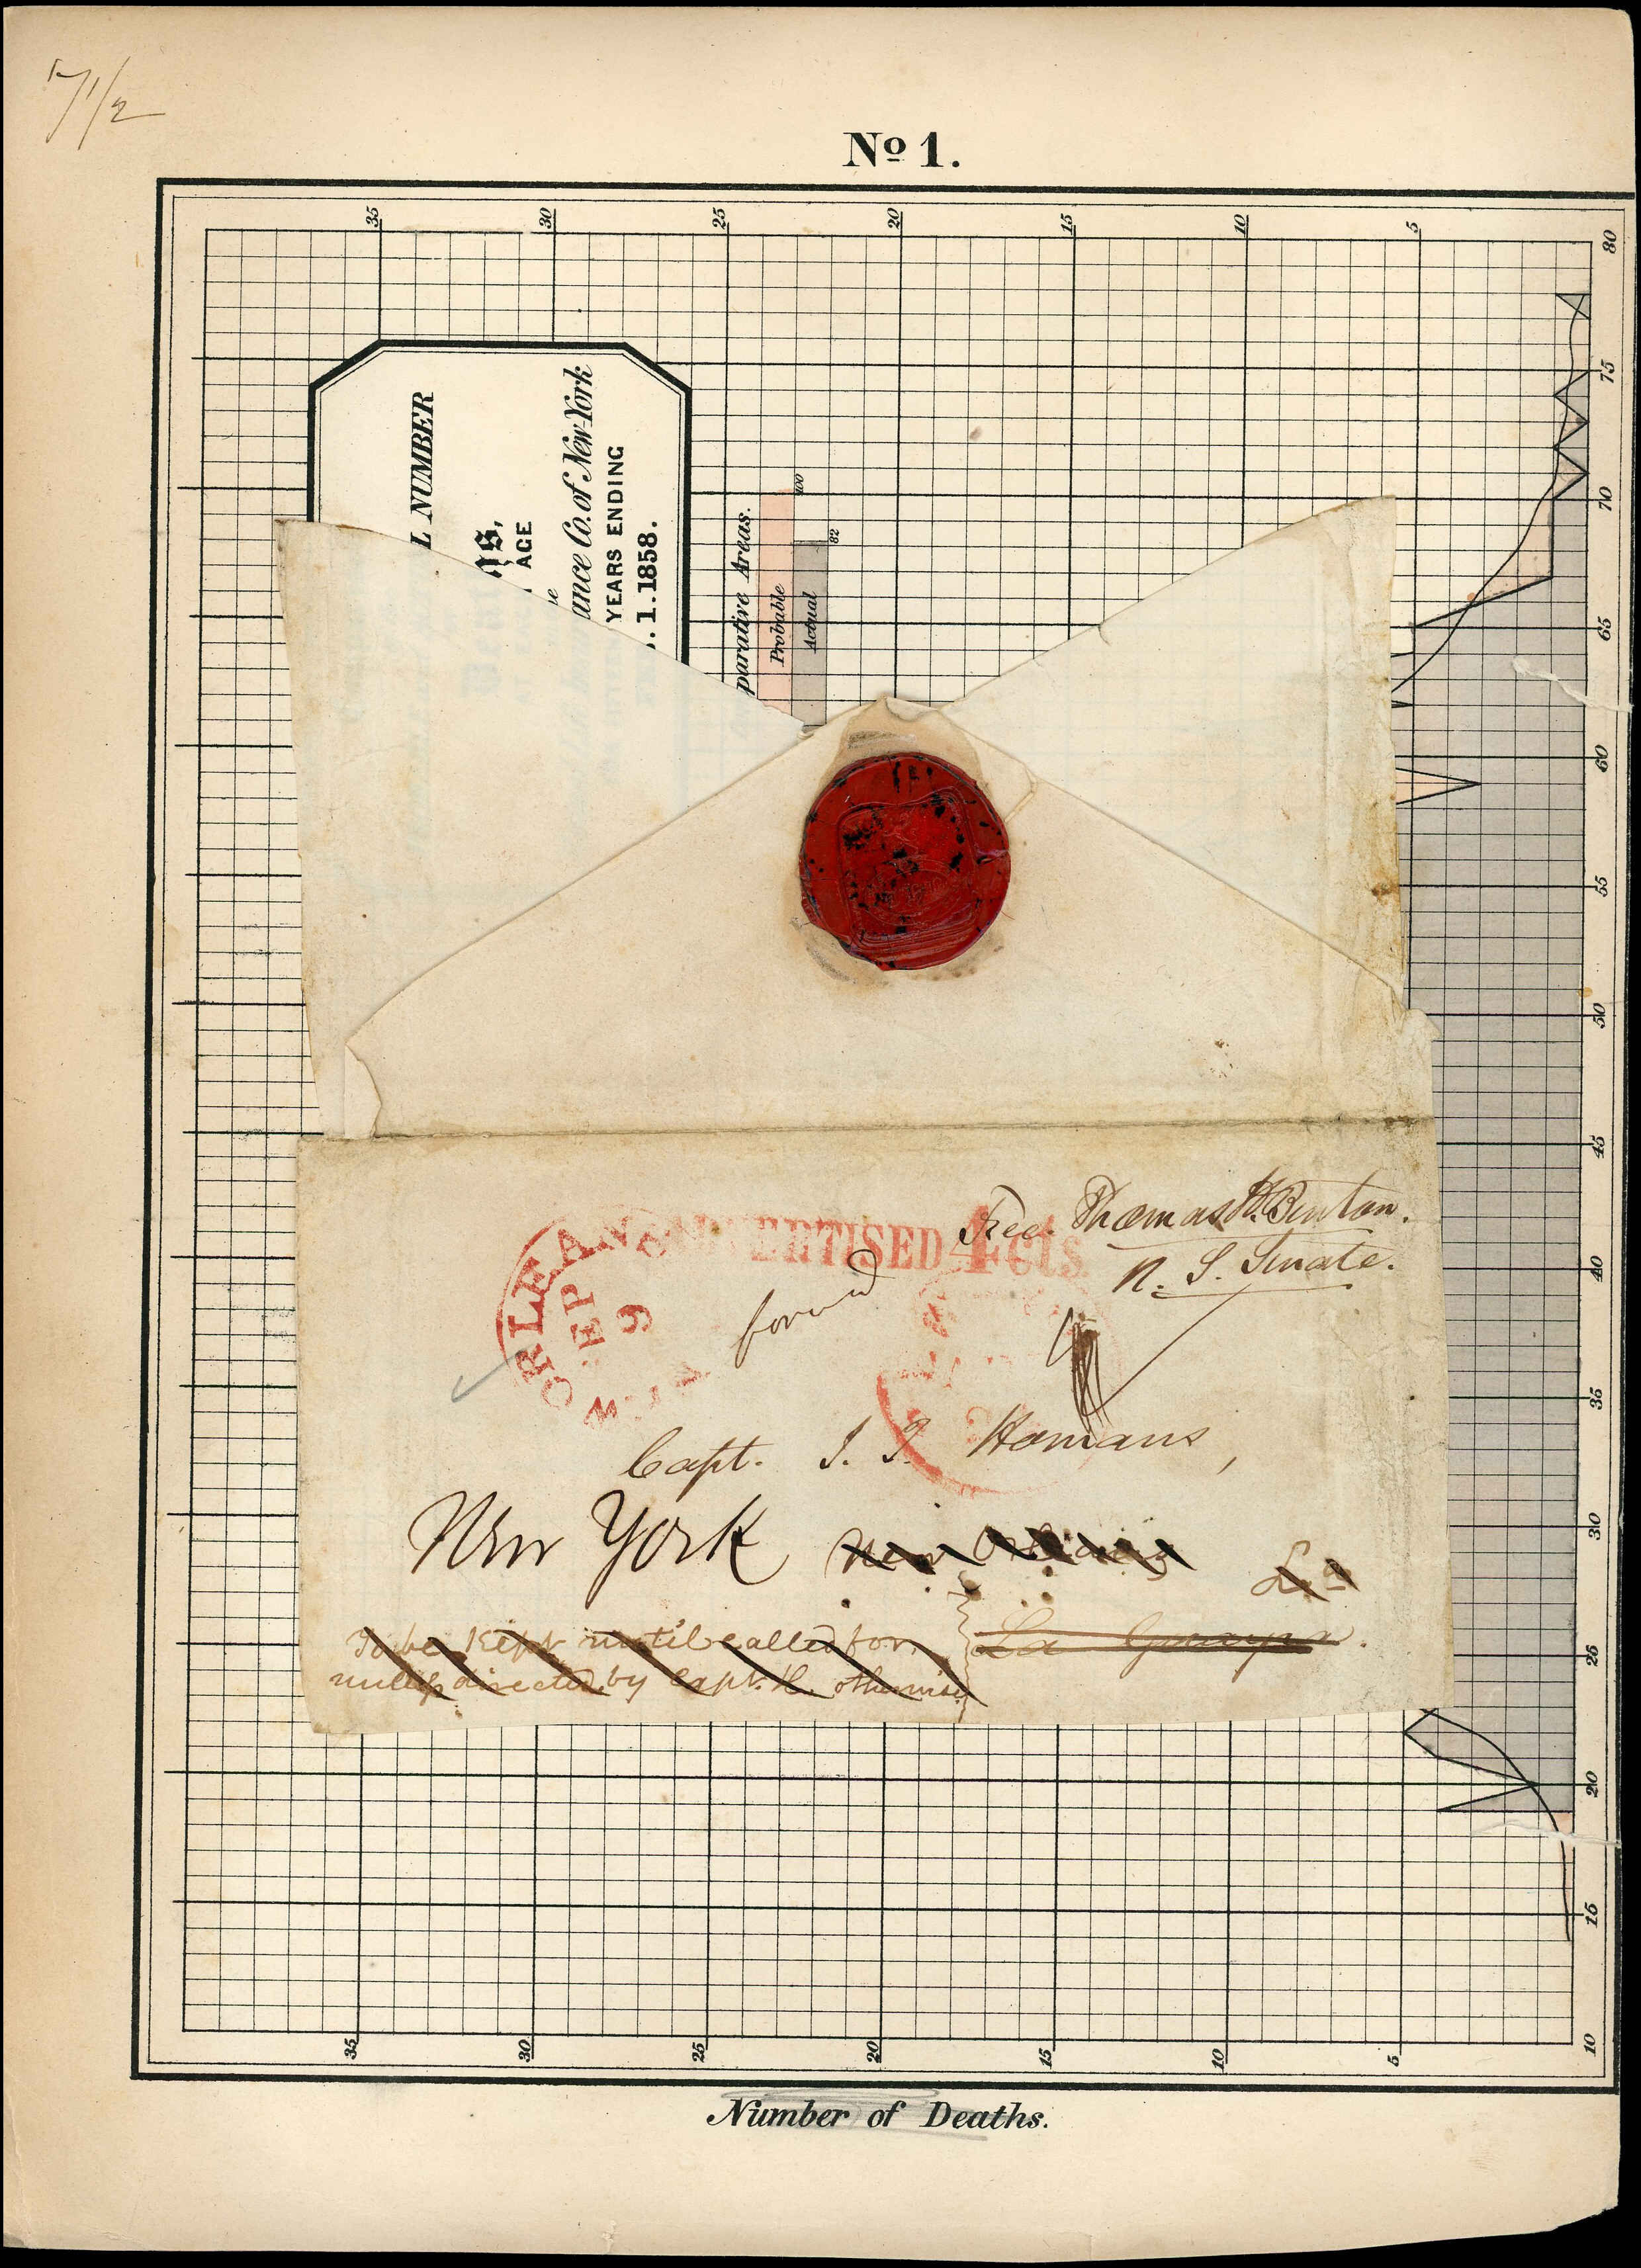 7 1/2
No 1.
35 30 25 20 15 10 5
80
75
70
65
60
55
50
45
40
35
30
25
20
15
10
L NUMBER
AGE
ance Co. of New-York
YEARS ENDING
. 1. 1858.
parative Areas.
Probable 100
Actual 82
Free. Thomas H. Benton.
U. S. Senate.
ORLEAN
SEP
9
ERTISED 4 cts.
forwd
Capt. I. T. Homans,
New York New Orleans
La
To be kept until called for
unless directed by Capt. H. otherwise
35 30 25 20 15 10 5
Number of Deaths.